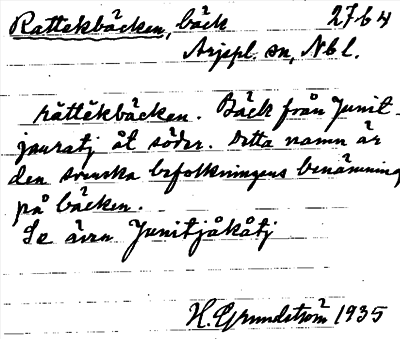 Rattekbäcken, bäck 2764
Arjepl. sn, Nbl.
råttēkbäcken. Bäck från Junit-
jauratj åt söder. Detta namn är
den svenska befolkningens benämning
på bäcken.
Se även Junitjåkåtj
H. Grundström 1935